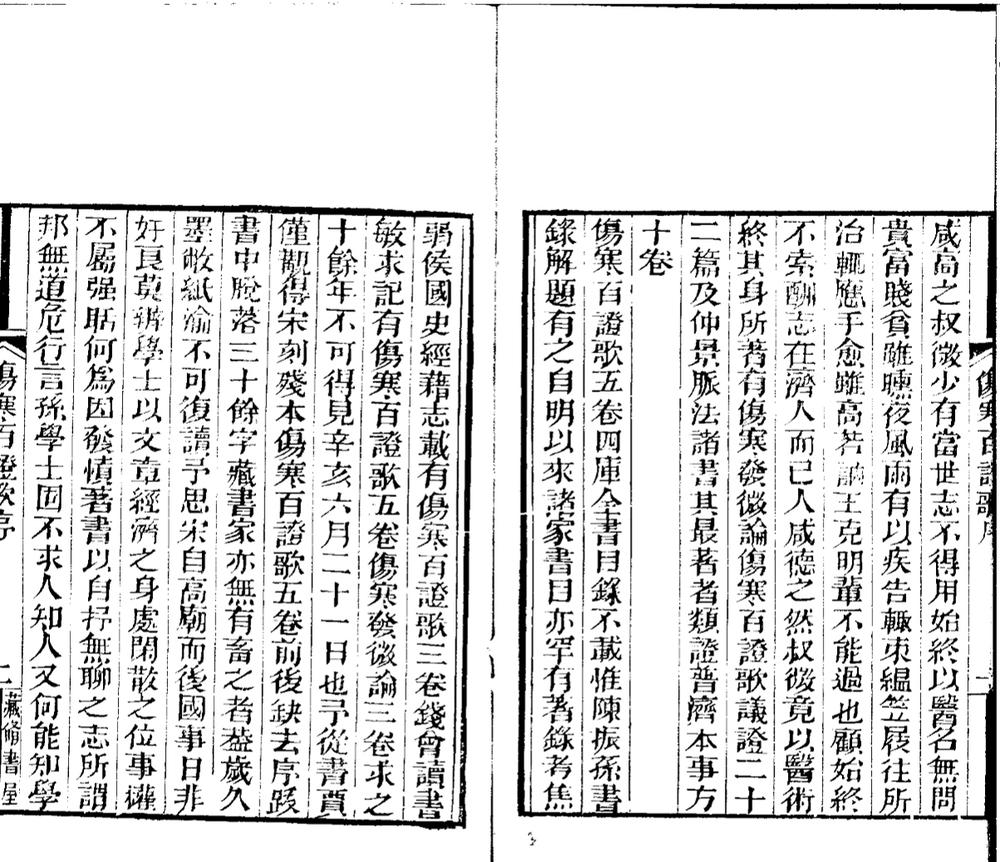 咸高之叔微少有當世志不得用始終以醫名無問
貴富賤貧雖曛夜風雨有以疾告輒束縕笠屐往所
治輒應手愈雖高若訥王克明輩不能過也顧始終
不索酬志在濟人而已人咸德之然叔微竟以醫術
終其身所著有傷寒發微論傷寒百證歌議證二十
二篇及仲景脈法諸書其最著者類證普濟本事方
十卷
傷寒百證歌五卷四庫全書目錄不載惟陳振孫書
錄解題有之自明以來諸家書目亦罕有著錄考焦
傷寒百證歌序
弱侯國史經藉志載有傷寒百證歌三卷錢曾讀書
敏求記有傷寒百證歌五卷傷寒發微論三卷求之
十餘年不可得見辛亥六月二十一日也予從書賈
僅觀得宋刻殘本傷寒百證歌五卷前後缺去序跋
書中脫落三十餘字藏書家亦無有畜之者葢歲久
墨敝紙渝不可復讀予思宋自高廟而後國事日非
奸良莫辨學士以文章經濟之身處閑散之位事權
不屬强聒何為因發憤著書以自抒無聊之志所謂
邦無道危行言孫學士固不求人知人又何能知學
傷寒百證歌序
二
藏脩書屋